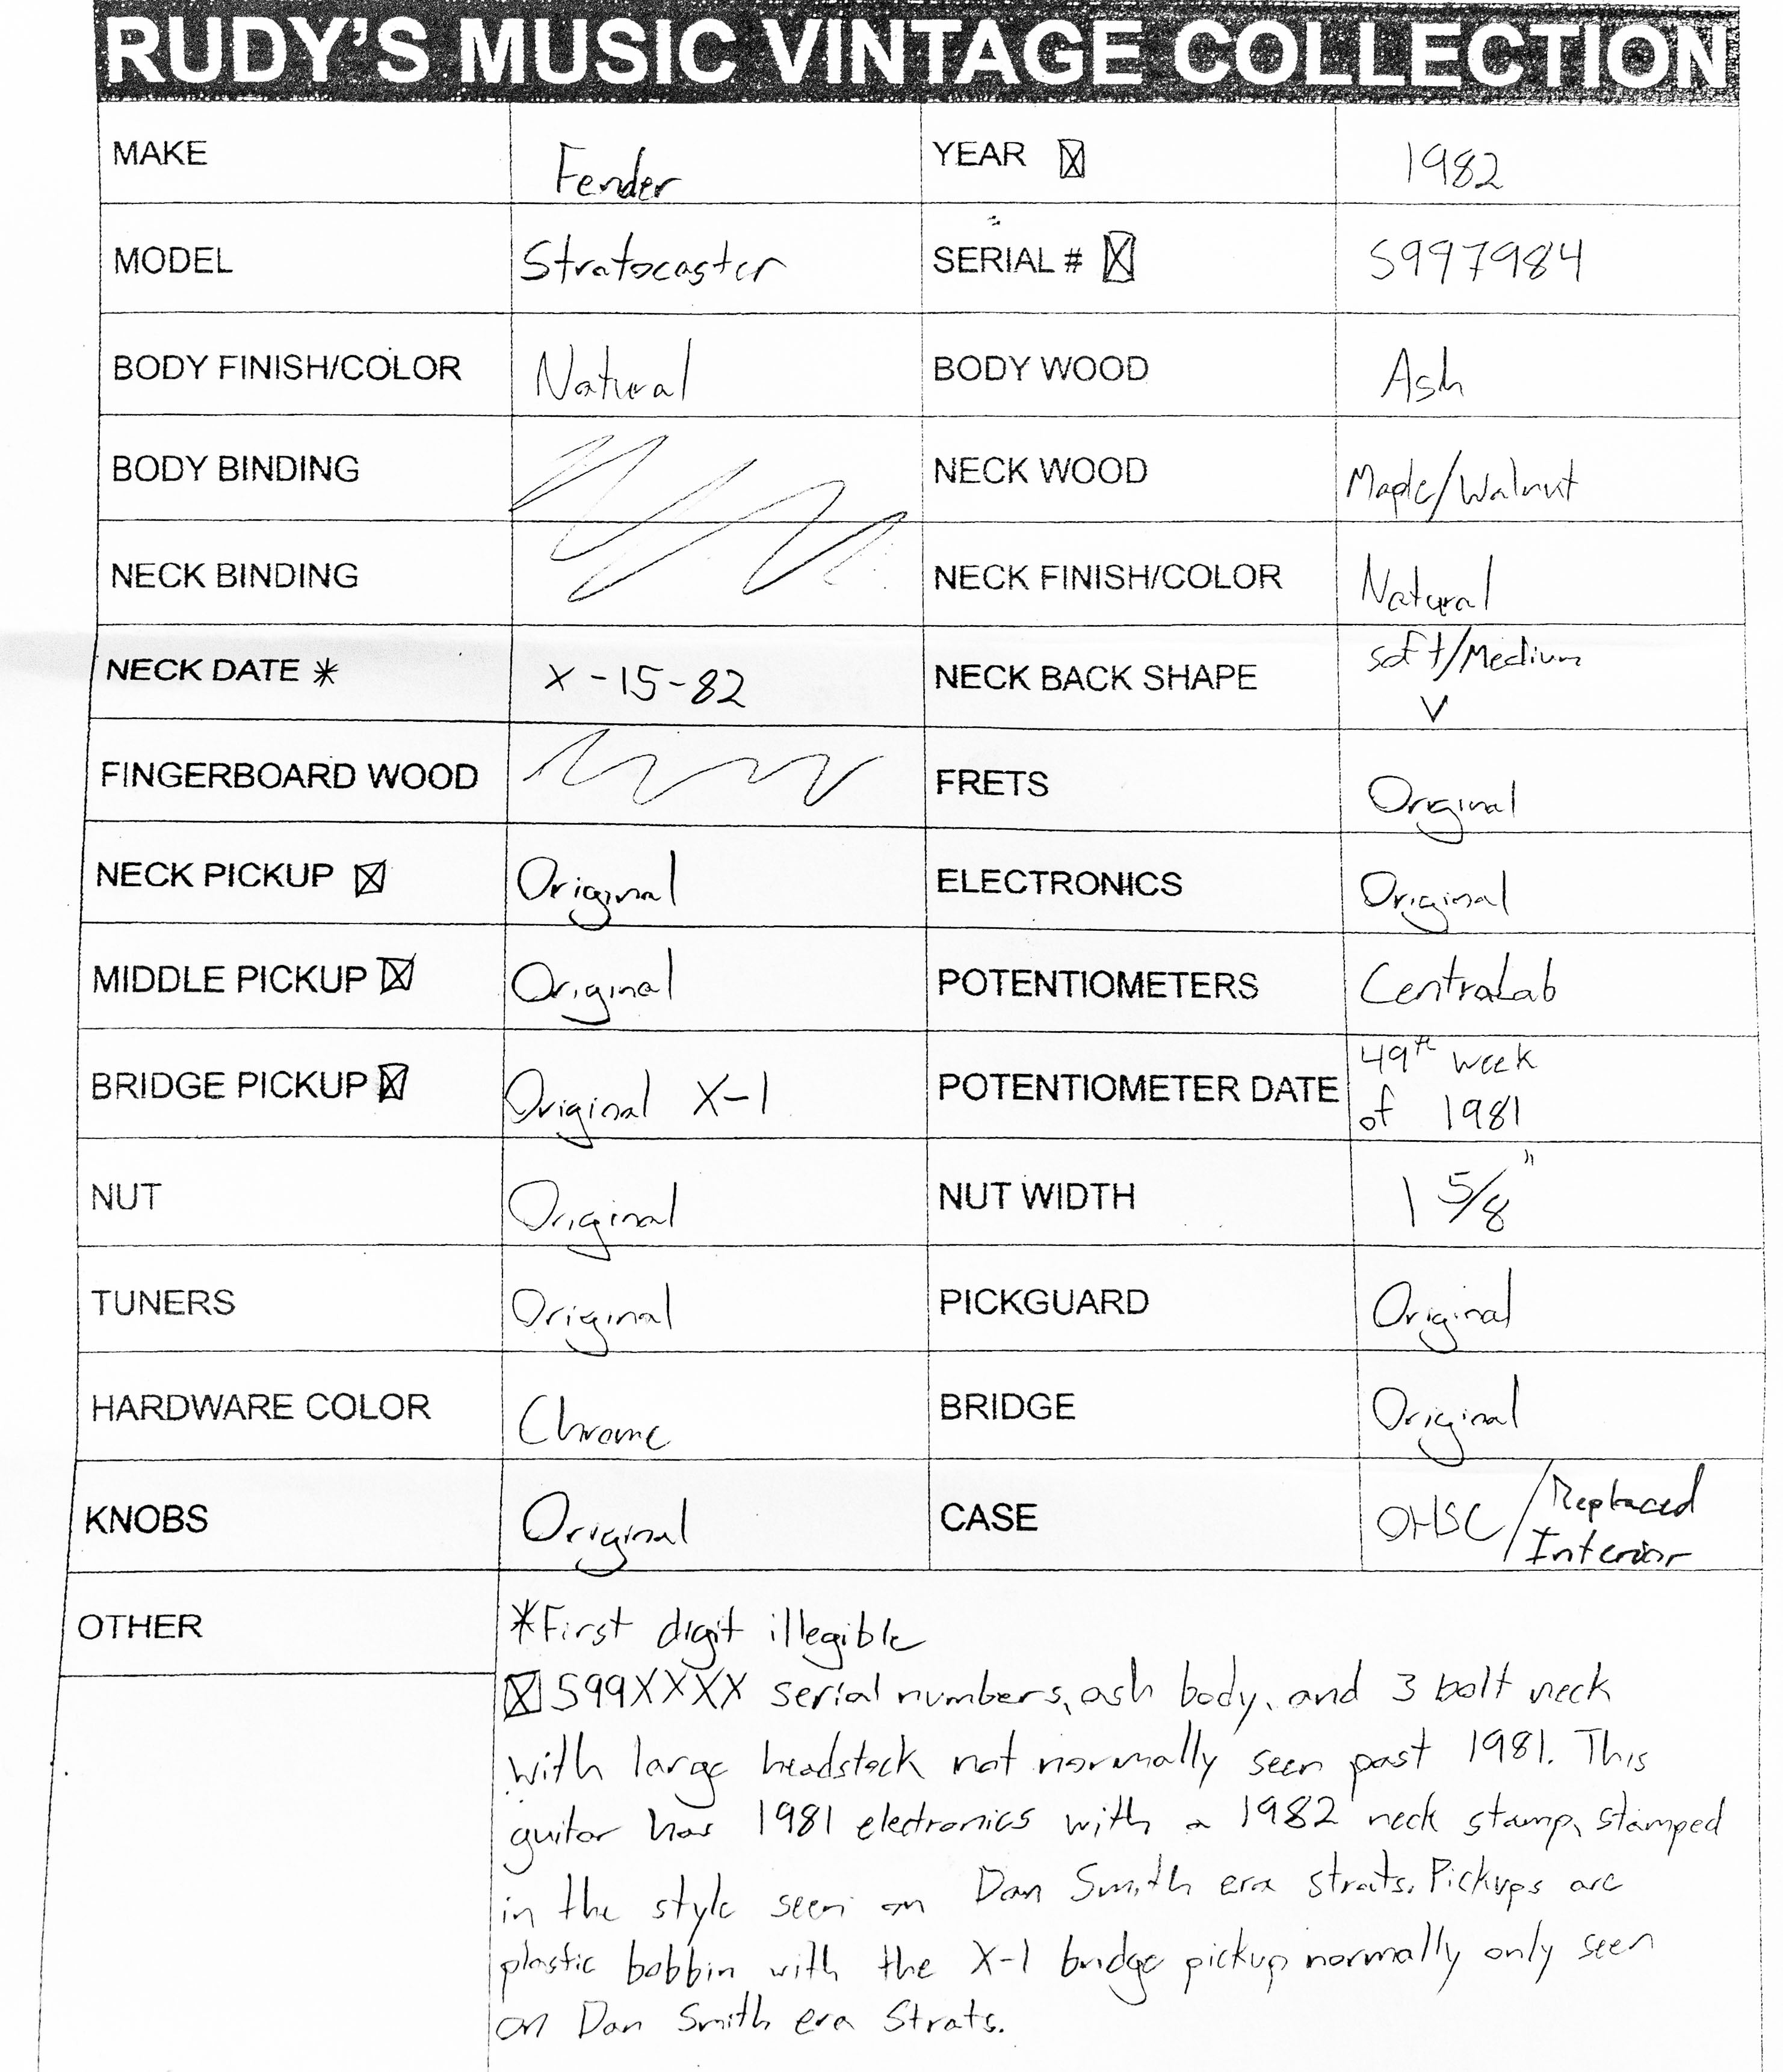 RUDY'S MUSIC VINTAGE COLLECTION
MAKE Fender YEAR ☒ 1982
MODEL Stratocaster SERIAL # ☒ S997984
BODY FINISH/COLOR Natural BODY WOOD Ash
BODY BINDING NECK WOOD Maple/Walnut
NECK BINDING NECK FINISH/COLOR Natural
NECK DATE * X-15-82 NECK BACK SHAPE soft/Medium
V
FINGERBOARD WOOD FRETS Original
NECK PICKUP ☒ Original ELECTRONICS Original
MIDDLE PICKUP ☒ Original POTENTIOMETERS CentraLab
BRIDGE PICKUP ☒ Original X-1 POTENTIOMETER DATE 49th week
of 1981
NUT Original NUT WIDTH 1 5/8"
TUNERS Original PICKGUARD Original
HARDWARE COLOR Chrome BRIDGE Original
KNOBS Original CASE OHSC/Replaced
Interior
OTHER *First digit illegible
☒ S99XXXX serial numbers, ash body, and 3 bolt neck
with large headstock not normally seen past 1981. This
guitar has 1981 electronics with a 1982 neck stamp, stamped
in the style seen on Dan Smith era strats. Pickups are
plastic bobbin with the X-1 bridge pickup normally only seen
on Dan Smith era Strats.